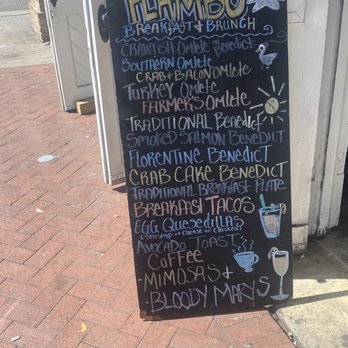 FLAMBO
BREAKFAST & BRUNCH
CRAWFISH OMLETE BENEDICT
SOUTHERN OMLETE
CRAB & BACON OMLETE
TURKEY OMLETE
FARMERS OMLETE
TRADITIONAL BENEDICT
SMOKED SALMON BENEDICT
FLORENTINE BENEDICT
CRAB CAKE BENEDICT
TRADITIONAL BREAKFAST PLATE
BREAKFAST TACOS
EGG QUESEDILLAS
(SHRIMP OR CHEESE OR CHICKEN)
AVOCADO TOAST
COFFEE
MIMOSAS &
BLOODY MARYS